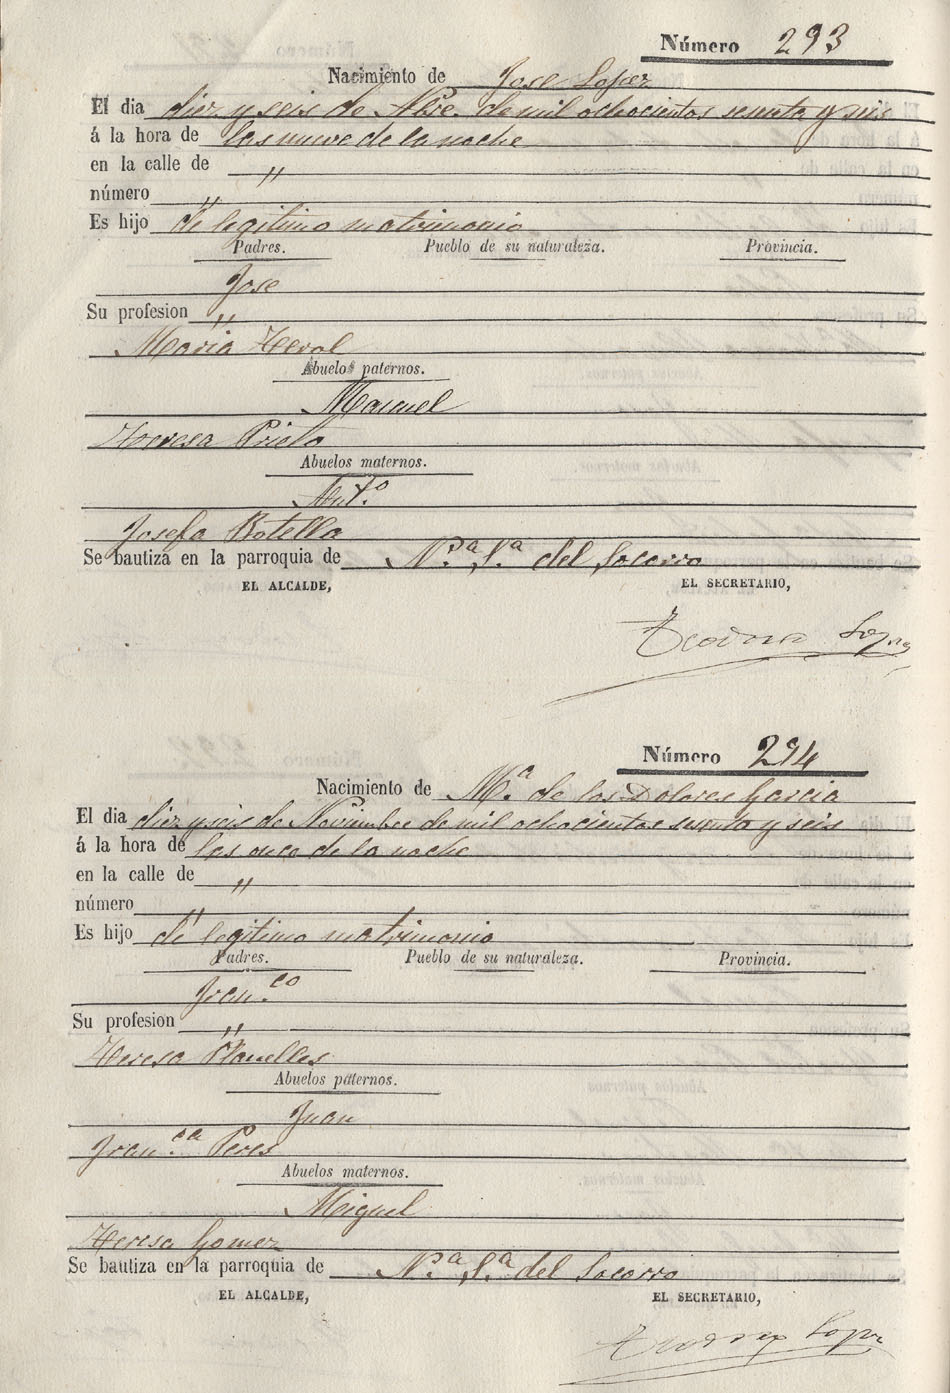 Número 293
Nacimiento de Jose Lopez
El dia diez y seis de Nbre. de mil ochocientos sesenta y seis
á la hora de las nueve de la noche
en la calle de "
número "
Es hijo de legitimo matrimonio
Padres. Pueblo de su naturaleza. Provincia.
Jose
Su profesion "
Maria Terol
Abuelos paternos.
Manuel
Teresa Prieto
Abuelos maternos.
Ant.º
Josefa Botella
Se bautiza en la parroquia de N.ª S.ª del Socorro
EL ALCALDE, EL SECRETARIO,
Teodoro Lopez
Número 294
Nacimiento de M.ª de los Dolores Garcia
El dia diez y seis de Noviembre de mil ochocientos sesenta y seis
á la hora de las once de la noche
en la calle de "
número "
Es hijo de legitimo matrimonio
Padres. Pueblo de su naturaleza. Provincia.
Fran.co
Su profesion "
Teresa Planelles
Abuelos paternos.
Juan
Fran.ca Peres
Abuelos maternos.
Miguel
Teresa Gomez
Se bautiza en la parroquia de N.ª S.ª del Socorro
EL ALCALDE, EL SECRETARIO,
Lopez